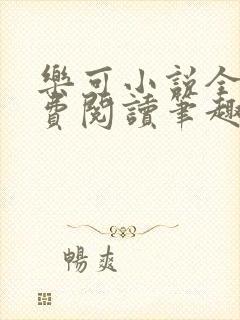 樂可小說全
費閱讀筆趣
暢爽